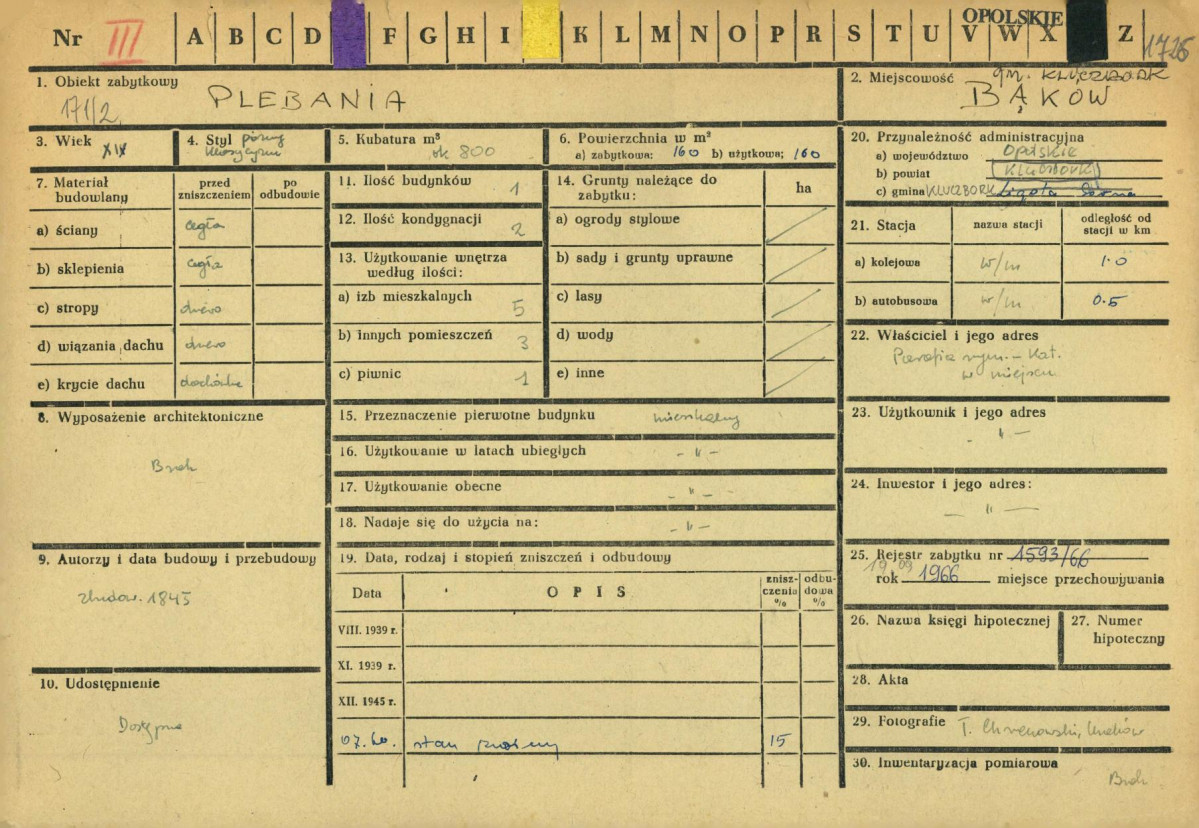 Nr III A B C D F G H I K L M N O P R S T U V W X Z
OPOLSKIE
1726
1. Obiekt zabytkowy
171/2
PLEBANIA
2. Miejscowość gm. KLUCZBORK
BĄKÓW
3. Wiek XIX
4. Styl późny klasycyzm
5. Kubatura m³
ok 800
6. Powierzchnia w m²
a) zabytkowa: 160 b) użytkowa: 160
20. Przynależność administracyjna
a) województwo Opolskie
b) powiat Kluczbork
c) gmina KLUCZBORK Ligota
7. Materiał budowlany
przed zniszczeniem
po odbudowie
a) ściany cegła
b) sklepienia cegła
c) stropy drewo
d) wiązania dachu drewo
e) krycie dachu dachówka
11. Ilość budynków 1
12. Ilość kondygnacji 2
13. Użytkowanie wnętrza według ilości:
a) izb mieszkalnych 5
b) innych pomieszczeń 3
c) piwnic 1
14. Grunty należące do zabytku: ha
a) ogrody stylowe
b) sady i grunty uprawne
c) lasy
d) wody
e) inne
21. Stacja nazwa stacji odległość od stacji w km
a) kolejowa w/m 1.0
b) autobusowa w/m 0.5
22. Właściciel i jego adres
Parafia rzym. - Kat.
w miejscu
8. Wyposażenie architektoniczne
Brak
15. Przeznaczenie pierwotne budynku mieszkalny
16. Użytkowanie w latach ubiegłych - " -
17. Użytkowanie obecne - " -
18. Nadaje się do użycia na: - " -
23. Użytkownik i jego adres
- " -
24. Inwestor i jego adres:
- " -
9. Autorzy i data budowy i przebudowy
zbudow. 1845
19. Data, rodzaj i stopień zniszczeń i odbudowy
Data OPIS zniszczenia % odbudowa %
VIII. 1939 r.
XI. 1939 r.
XII. 1945 r.
07.60. stan 15
25. Rejestr zabytku nr 1593/66
19.09
rok 1966 miejsce przechowywania
26. Nazwa księgi hipotecznej
27. Numer hipoteczny
28. Akta
10. Udostępnienie
Dostępna
29. Fotografie T. Chrzanowski, Kraków
30. Inwentaryzacja pomiarowa
Brak